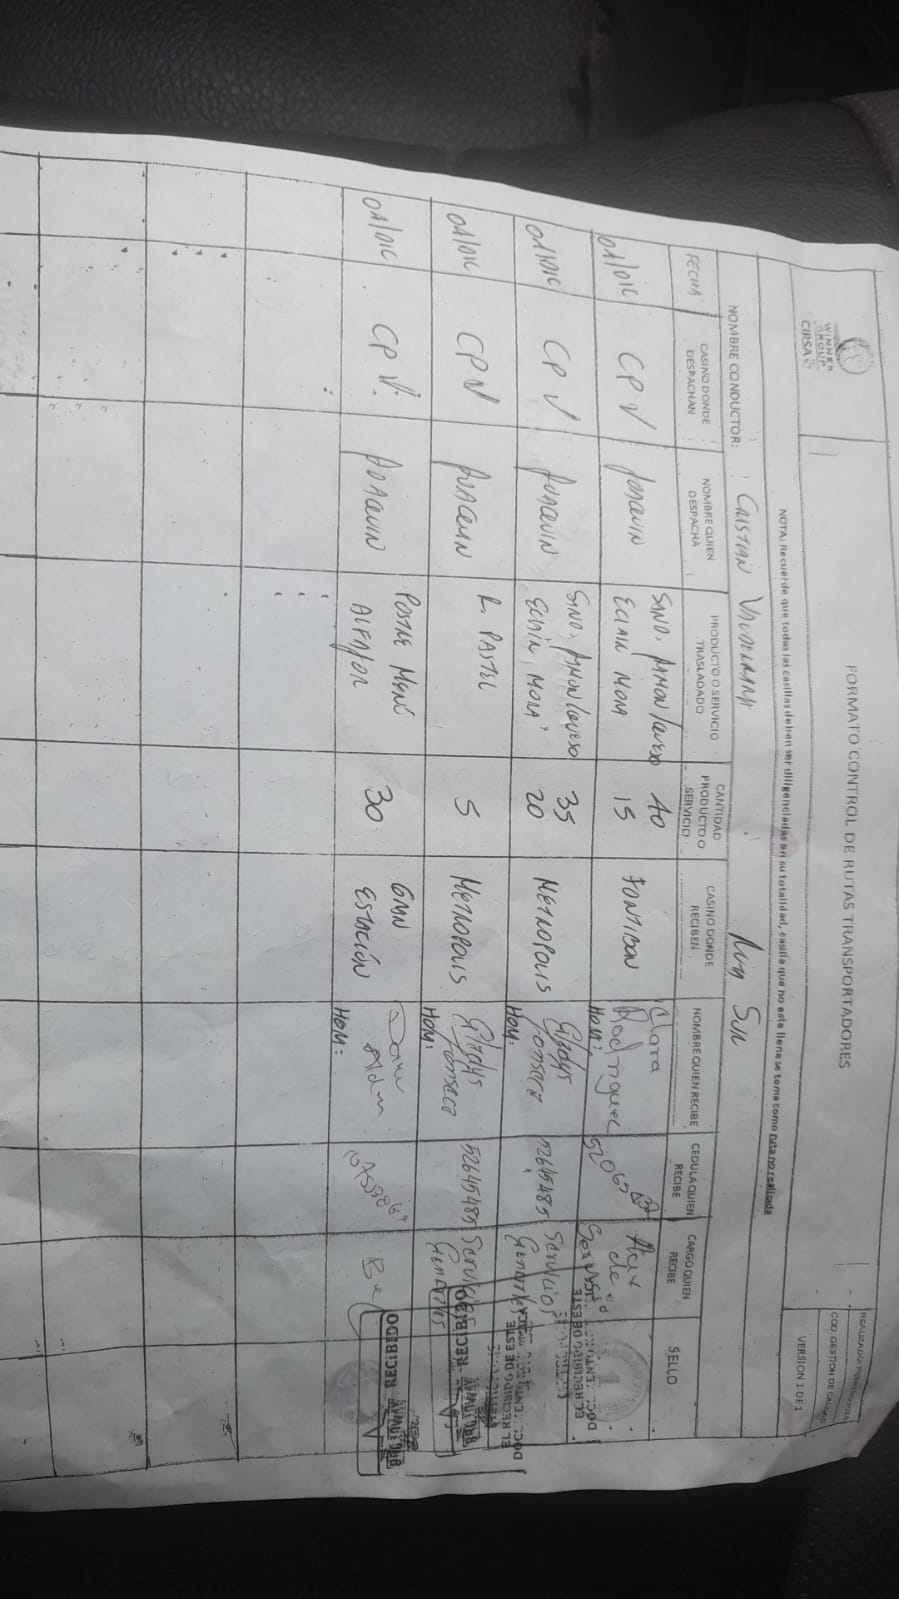 WINNER
GROUP
CIRSA
FORMATO CONTROL DE RUTAS TRANSPORTADORES
COD. GESTION DE CALIDAD
VERSION 1 DE 1
NOTA: Recuerde que todas las casillas deben ser diligenciadas en su totalidad, casilla que no este llena se toma como ruta no realizada
NOMBRE CONDUCTOR: CRISTIAN
FECHA
CASINO DONDE DESPACHAN
NOMBRE QUIEN DESPACHA
PRODUCTO O SERVICIO TRASLADADO
CANTIDAD PRODUCTO O SERVICIO
CASINO DONDE RECIBEN
NOMBRE QUIEN RECIBE
CEDULA QUIEN RECIBE
CARGO QUIEN RECIBE
SELLO
01/DIC CPV JOAQUIN SAND. JAMON/QUESO 40 FONTIBON Clara Rodriguez
ECLAIR MORA 15 HORA:
01/DIC CPV JOAQUIN SAND. JAMON/QUESO 35 METROPOLIS Gladys Fonseca 52645485 Servicios Generales
ECLAIR MORA 20 HORA:
01/DIC CPV JOAQUIN R. PASTEL 5 METROPOLIS Gladys Fonseca 52645485 Servicios Generales
HORA:
RECIBIDO
01/DIC CPV JOAQUIN POSTRE MENÉ ALFAJOR 30 GRAN ESTACIÓN
HORA:
RECIBIDO